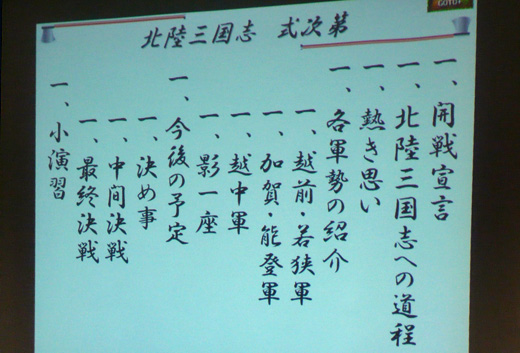 北陸三国志 式次第
一、開戦宣言
一、北陸三国志への道程
一、熱き思い
一、各軍勢の紹介
一、越前・若狭軍
一、加賀・能登軍
一、越中軍
一、影一座
一、今後の予定
一、決め事
一、中間決戦
一、最終決戦
一、小演習